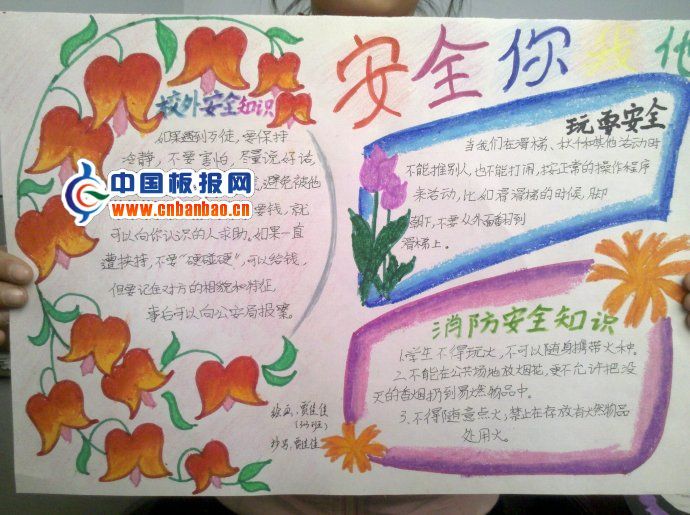 安全你我他
校外安全知识
如果遇到歹徒，要保持
冷静，不要害怕，尽量说好话，
避免被他
要钱，就
可以向你认识的人求助。如果一直
遭挟持，不要“硬碰硬”，可以给钱，
但要记住对方的相貌和特征，
事后可以向公安局报案。
中国板报网
www.cnbanbao.cn
玩耍安全
当我们在滑梯、秋千和其他活动时
不能推别人，也不能打闹，按正常的操作程序
来活动，比如滑滑梯的时候，脚
朝下，不要从外面翻到
滑梯上。
消防安全知识
1.学生不得玩火，不可以随身携带火种。
2.不能在公共场地放烟花，更不允许把没
灭的香烟扔到易燃物品中。
3.不得随意点火，禁止在存放有燃物品
处用火。
绘画：贾佳佳
抄写：贾佳佳